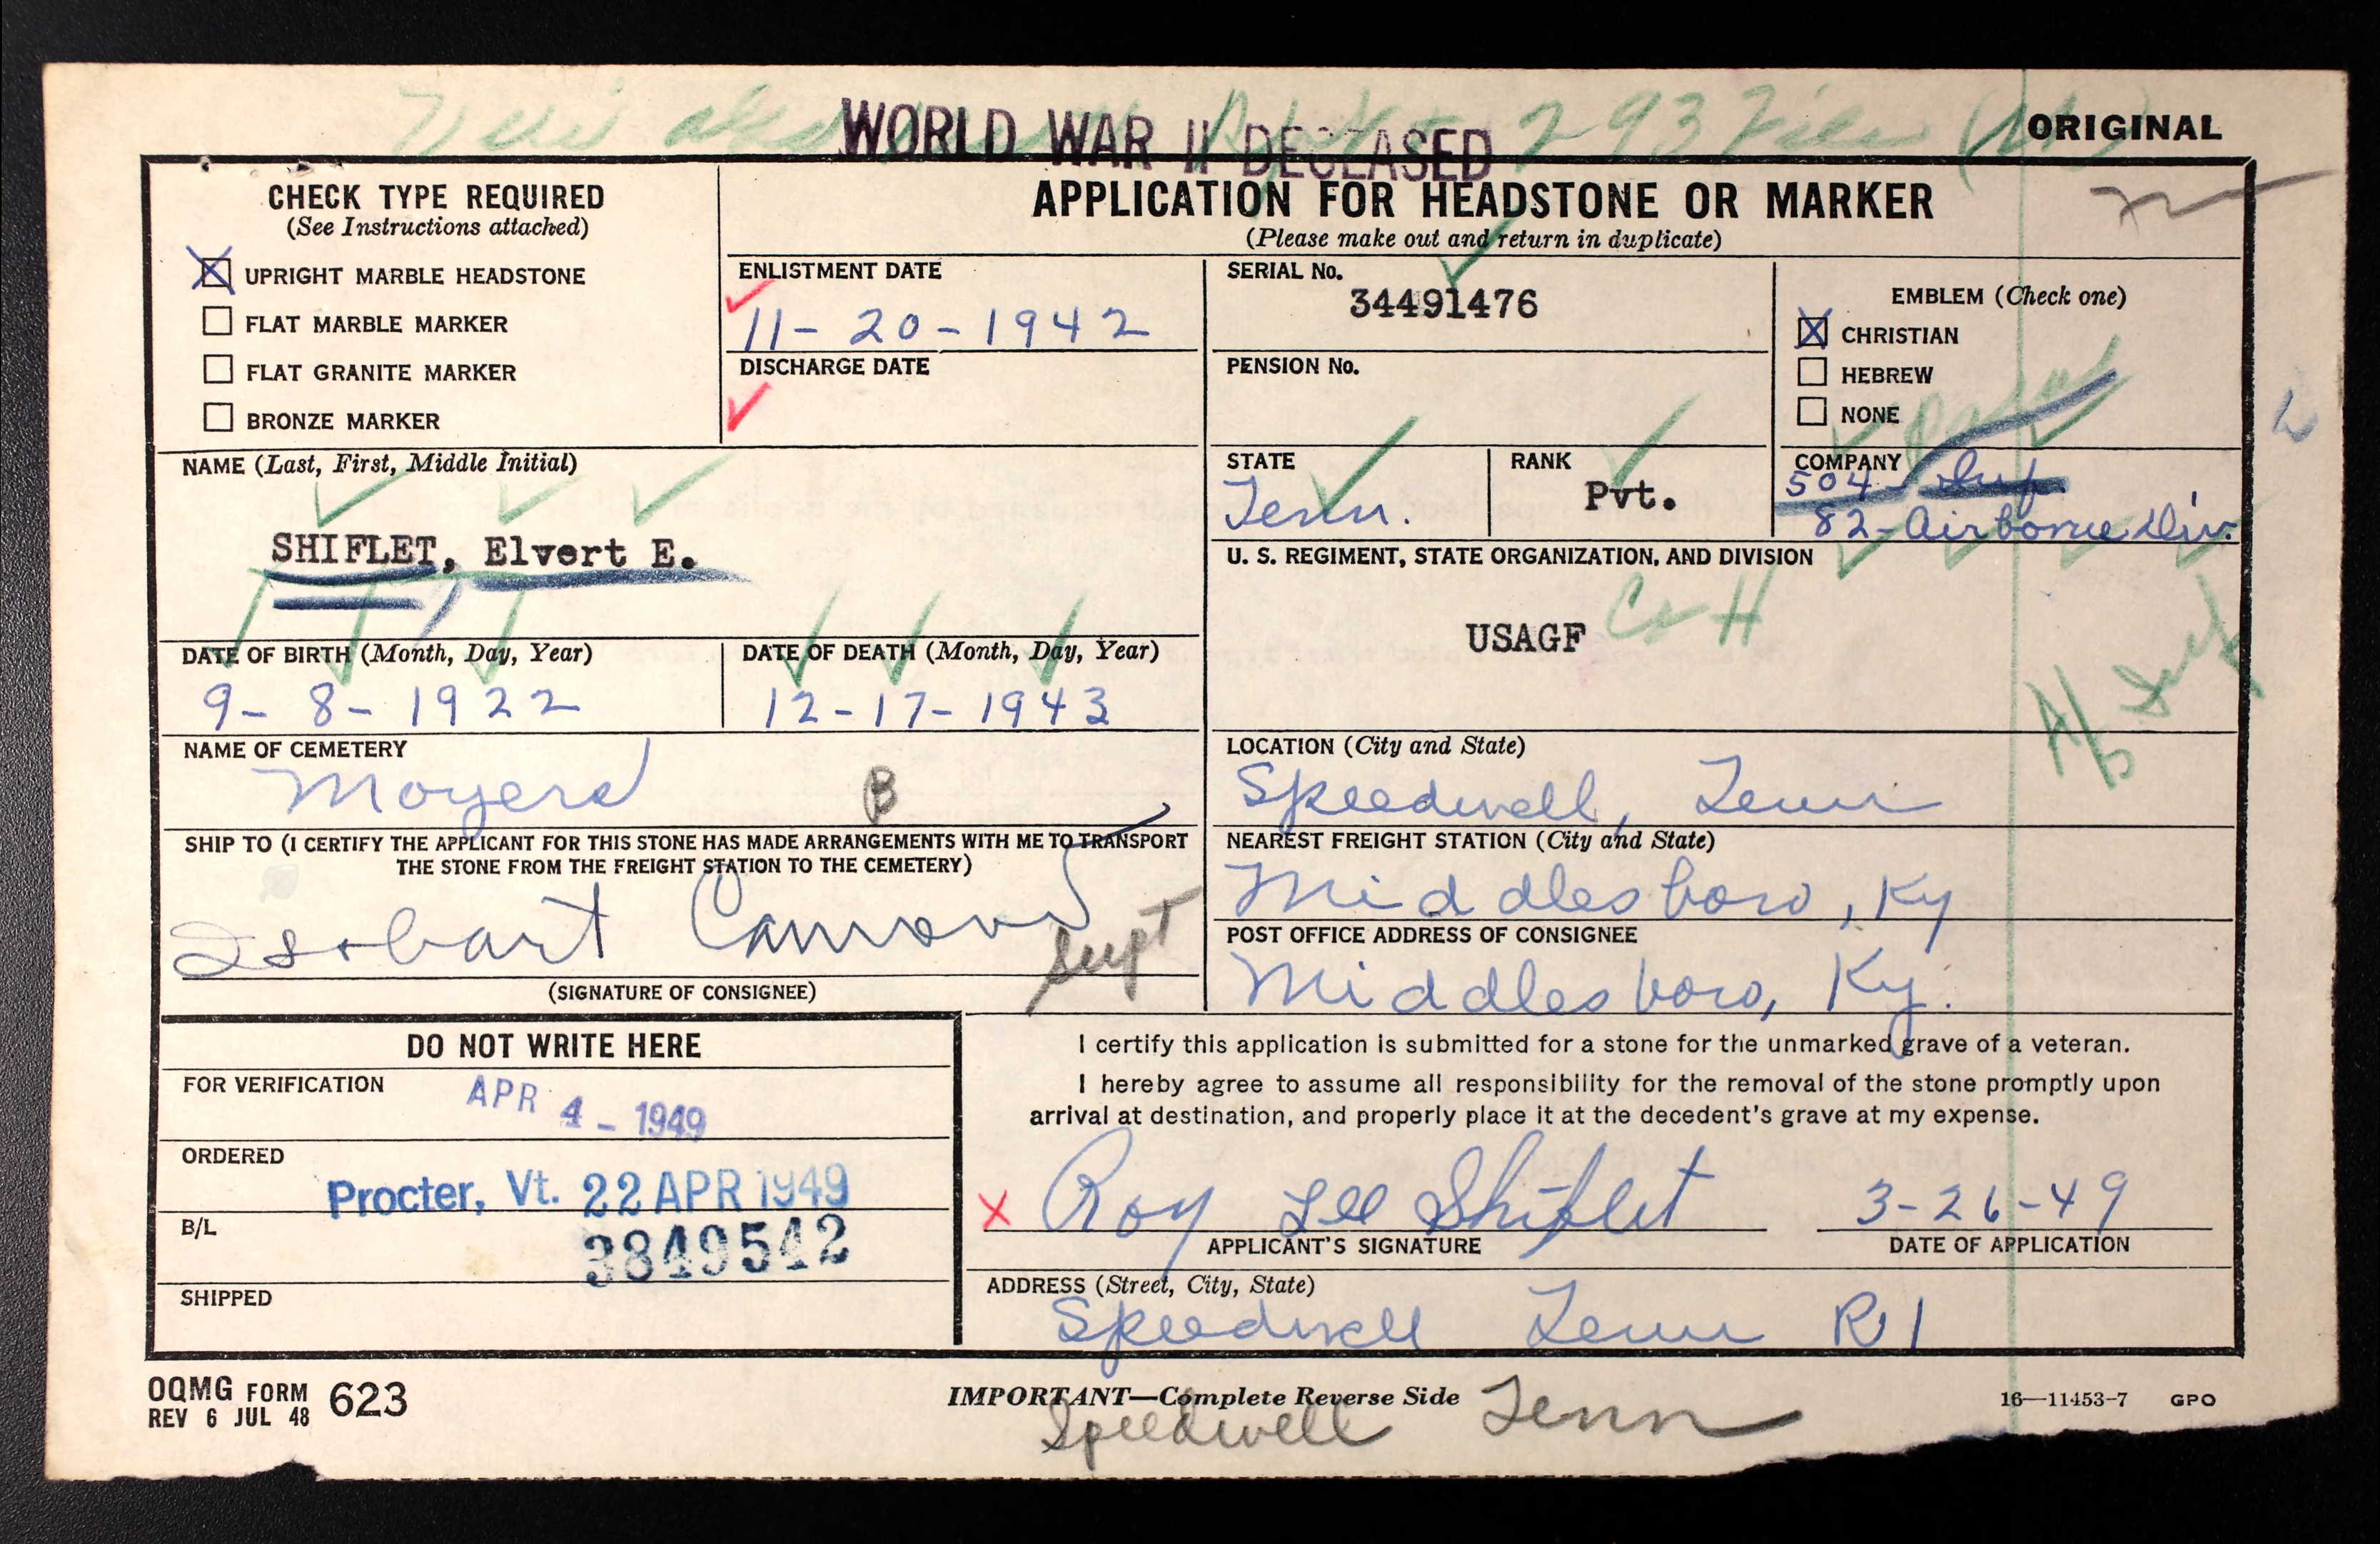 WORLD WAR II DECEASED
293 File
ORIGINAL
CHECK TYPE REQUIRED
(See Instructions attached)
X UPRIGHT MARBLE HEADSTONE
FLAT MARBLE MARKER
FLAT GRANITE MARKER
BRONZE MARKER
APPLICATION FOR HEADSTONE OR MARKER
(Please make out and return in duplicate)
ENLISTMENT DATE
11-20-1942
DISCHARGE DATE
SERIAL No.
34491476
PENSION No.
EMBLEM (Check one)
X CHRISTIAN
HEBREW
NONE
NAME (Last, First, Middle Initial)
SHIFLET, Elvert E.
STATE
Tenn.
RANK
Pvt.
COMPANY
504 Inf.
82-Airborne Div.
U. S. REGIMENT, STATE ORGANIZATION, AND DIVISION
USAGF
DATE OF BIRTH (Month, Day, Year)
9-8-1922
DATE OF DEATH (Month, Day, Year)
12-17-1943
NAME OF CEMETERY
Moyers
B
LOCATION (City and State)
Speedwell, Tenn
SHIP TO (I CERTIFY THE APPLICANT FOR THIS STONE HAS MADE ARRANGEMENTS WITH ME TO TRANSPORT
THE STONE FROM THE FREIGHT STATION TO THE CEMETERY)
Supt
(SIGNATURE OF CONSIGNEE)
NEAREST FREIGHT STATION (City and State)
Middlesboro, Ky
POST OFFICE ADDRESS OF CONSIGNEE
Middlesboro, Ky.
DO NOT WRITE HERE
FOR VERIFICATION
APR 4 - 1949
ORDERED
Procter, Vt. 22 APR 1949
B/L
3849542
SHIPPED
I certify this application is submitted for a stone for the unmarked grave of a veteran.
I hereby agree to assume all responsibility for the removal of the stone promptly upon
arrival at destination, and properly place it at the decedent's grave at my expense.
X Roy Lee Shiflet
3-26-49
APPLICANT'S SIGNATURE
DATE OF APPLICATION
ADDRESS (Street, City, State)
Speedwell Tenn R1
OQMG FORM 623
REV 6 JUL 48
IMPORTANT—Complete Reverse Side
16—11453-7 GPO
Speedwell Tenn